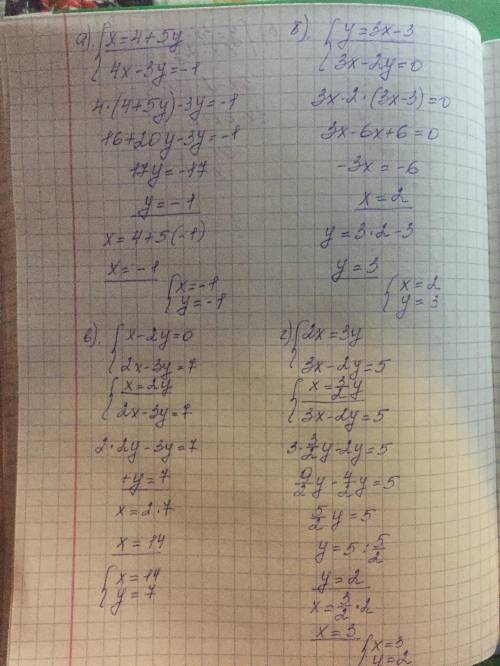 а). { x=4+5y
4x-3y=-1
4·(4+5y)-3y=-1
16+20y-3y=-1
17y=-17
y=-1
x=4+5(-1)
x=-1
{ x=-1
y=-1
б). { y=3x-3
3x-2y=0
3x-2·(3x-3)=0
3x-6x+6=0
-3x=-6
x=2
y=3·2-3
y=3
{ x=2
y=3
в). { x-2y=0
2x-3y=7
{ x=2y
2x-3y=7
2·2y-3y=7
+y=7
x=2·7
x=14
{ x=14
y=7
г) { 2x=3y
3x-2y=5
{ x=3/2y
3x-2y=5
3·3/2y-2y=5
9/2y-4/2y=5
5/2y=5
y=5:5/2
y=2
x=3/2·2
x=3
{ x=3
y=2